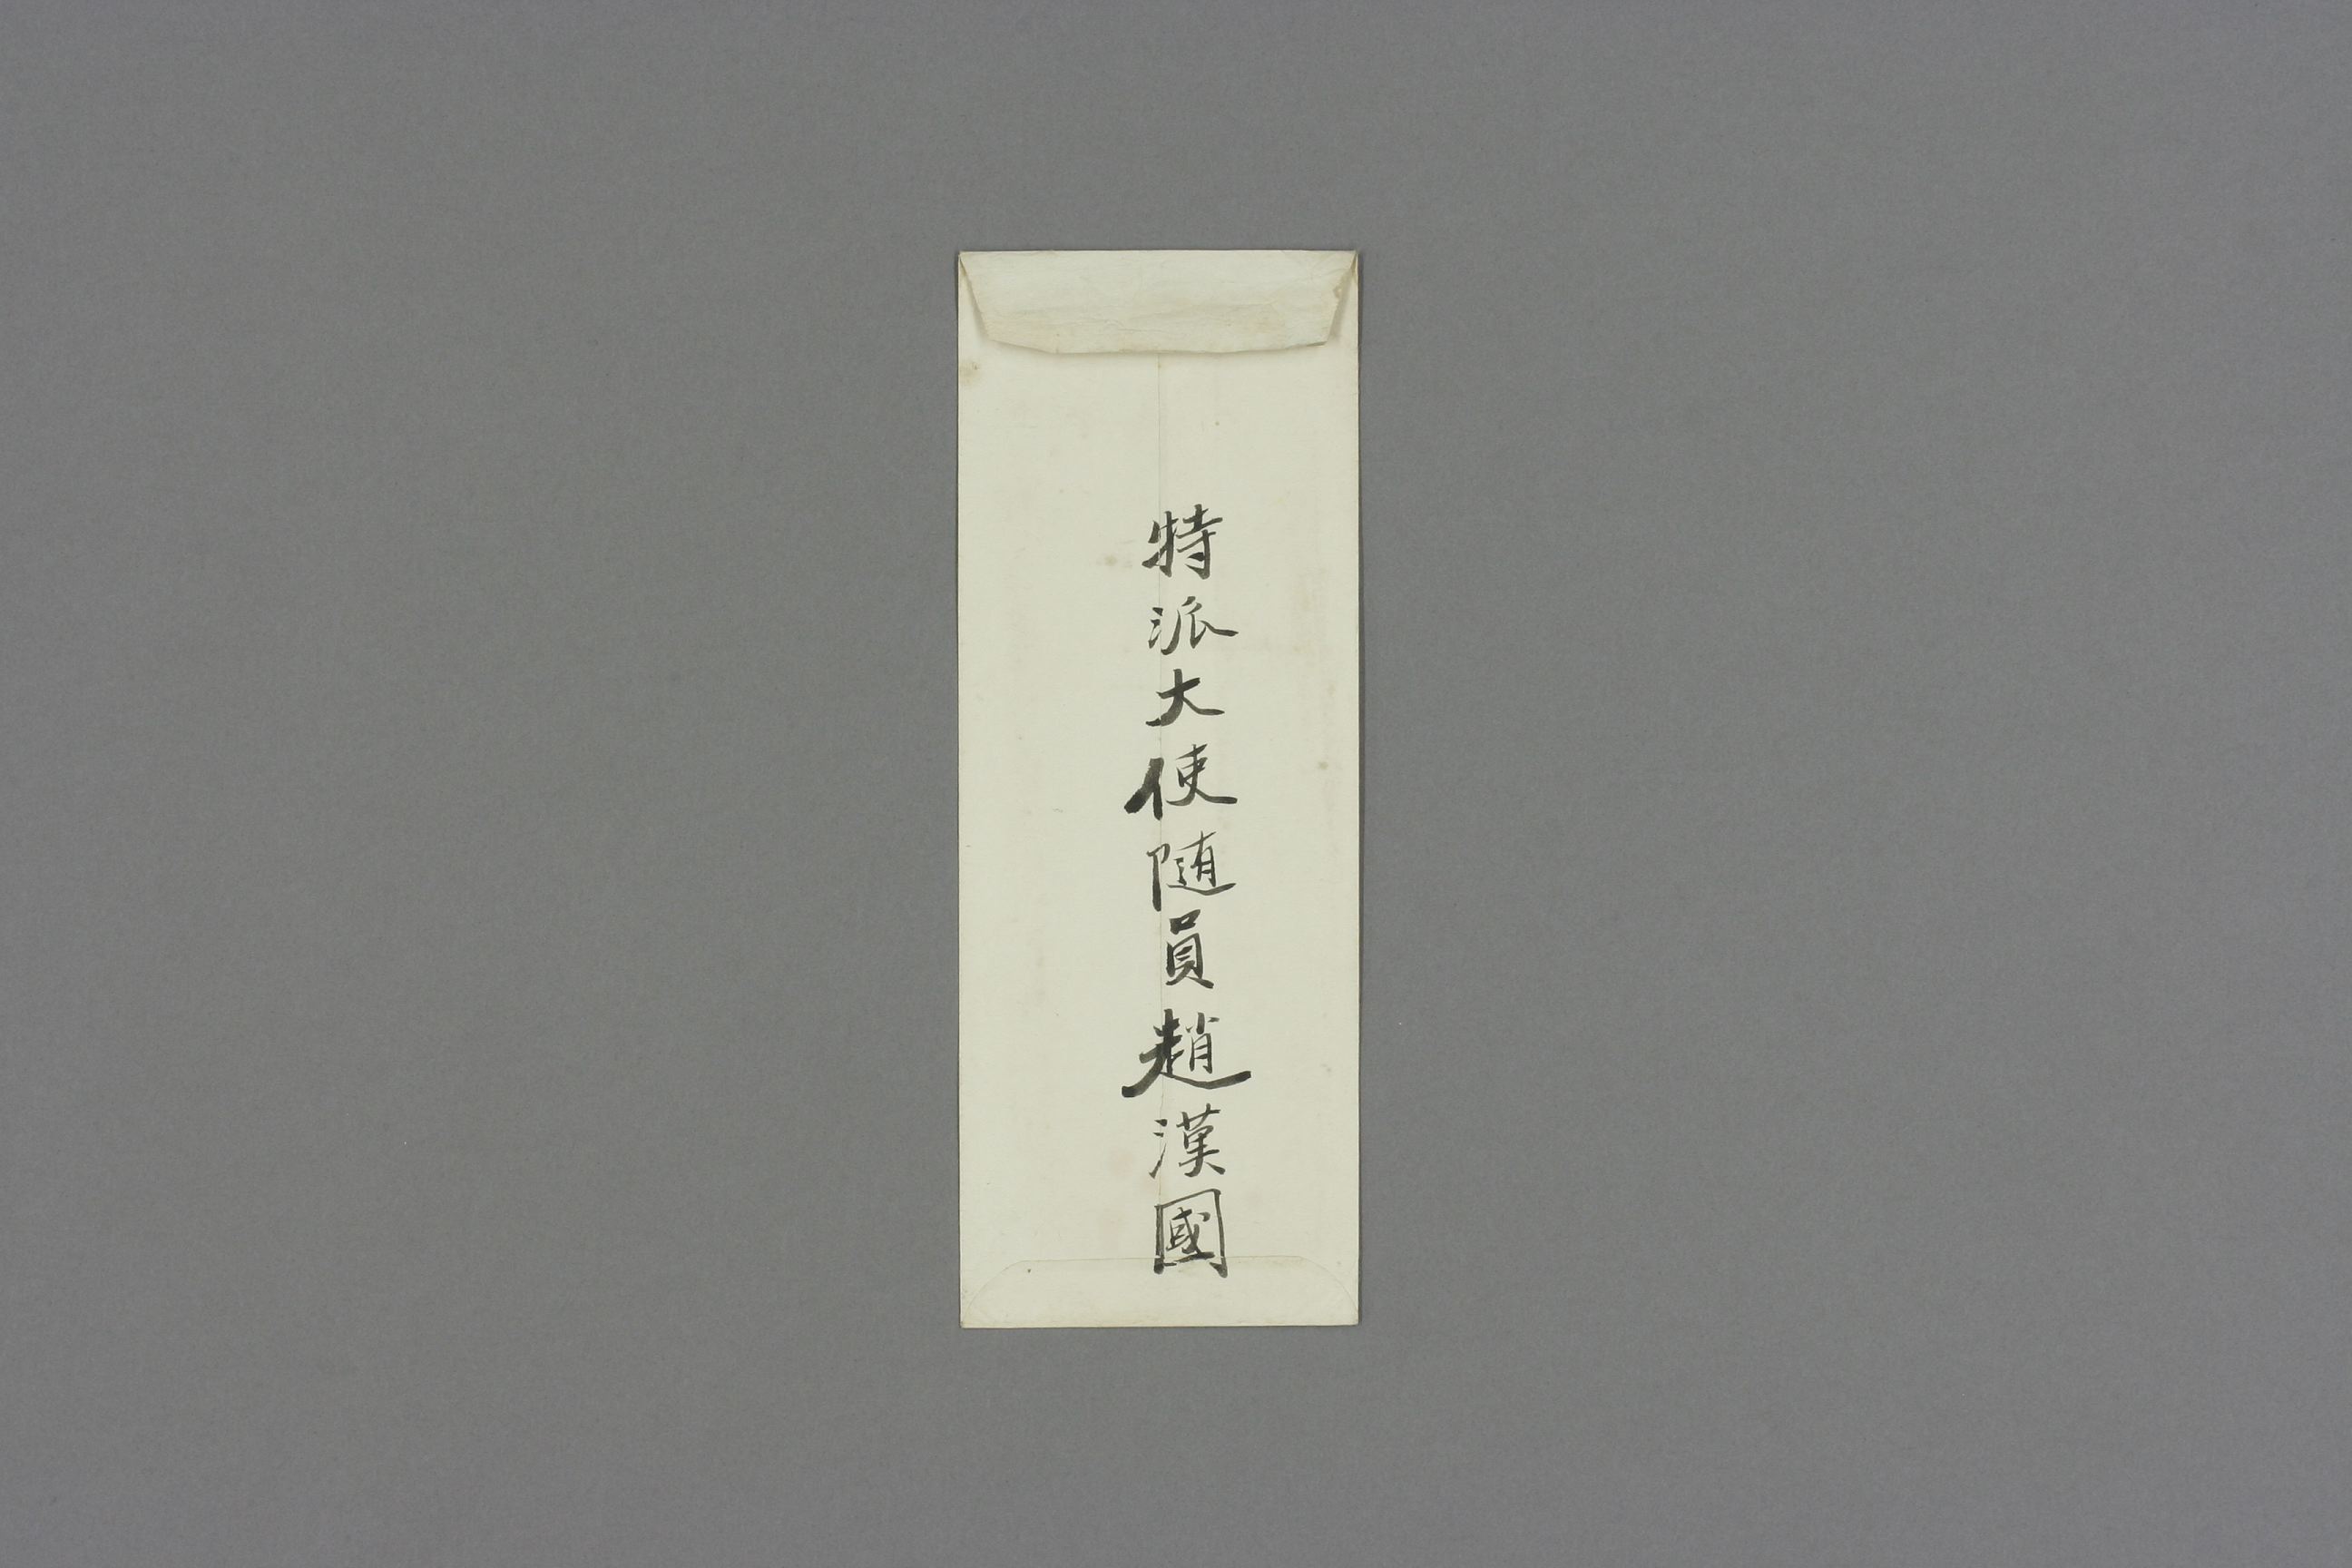 特派大使随員趙漢國